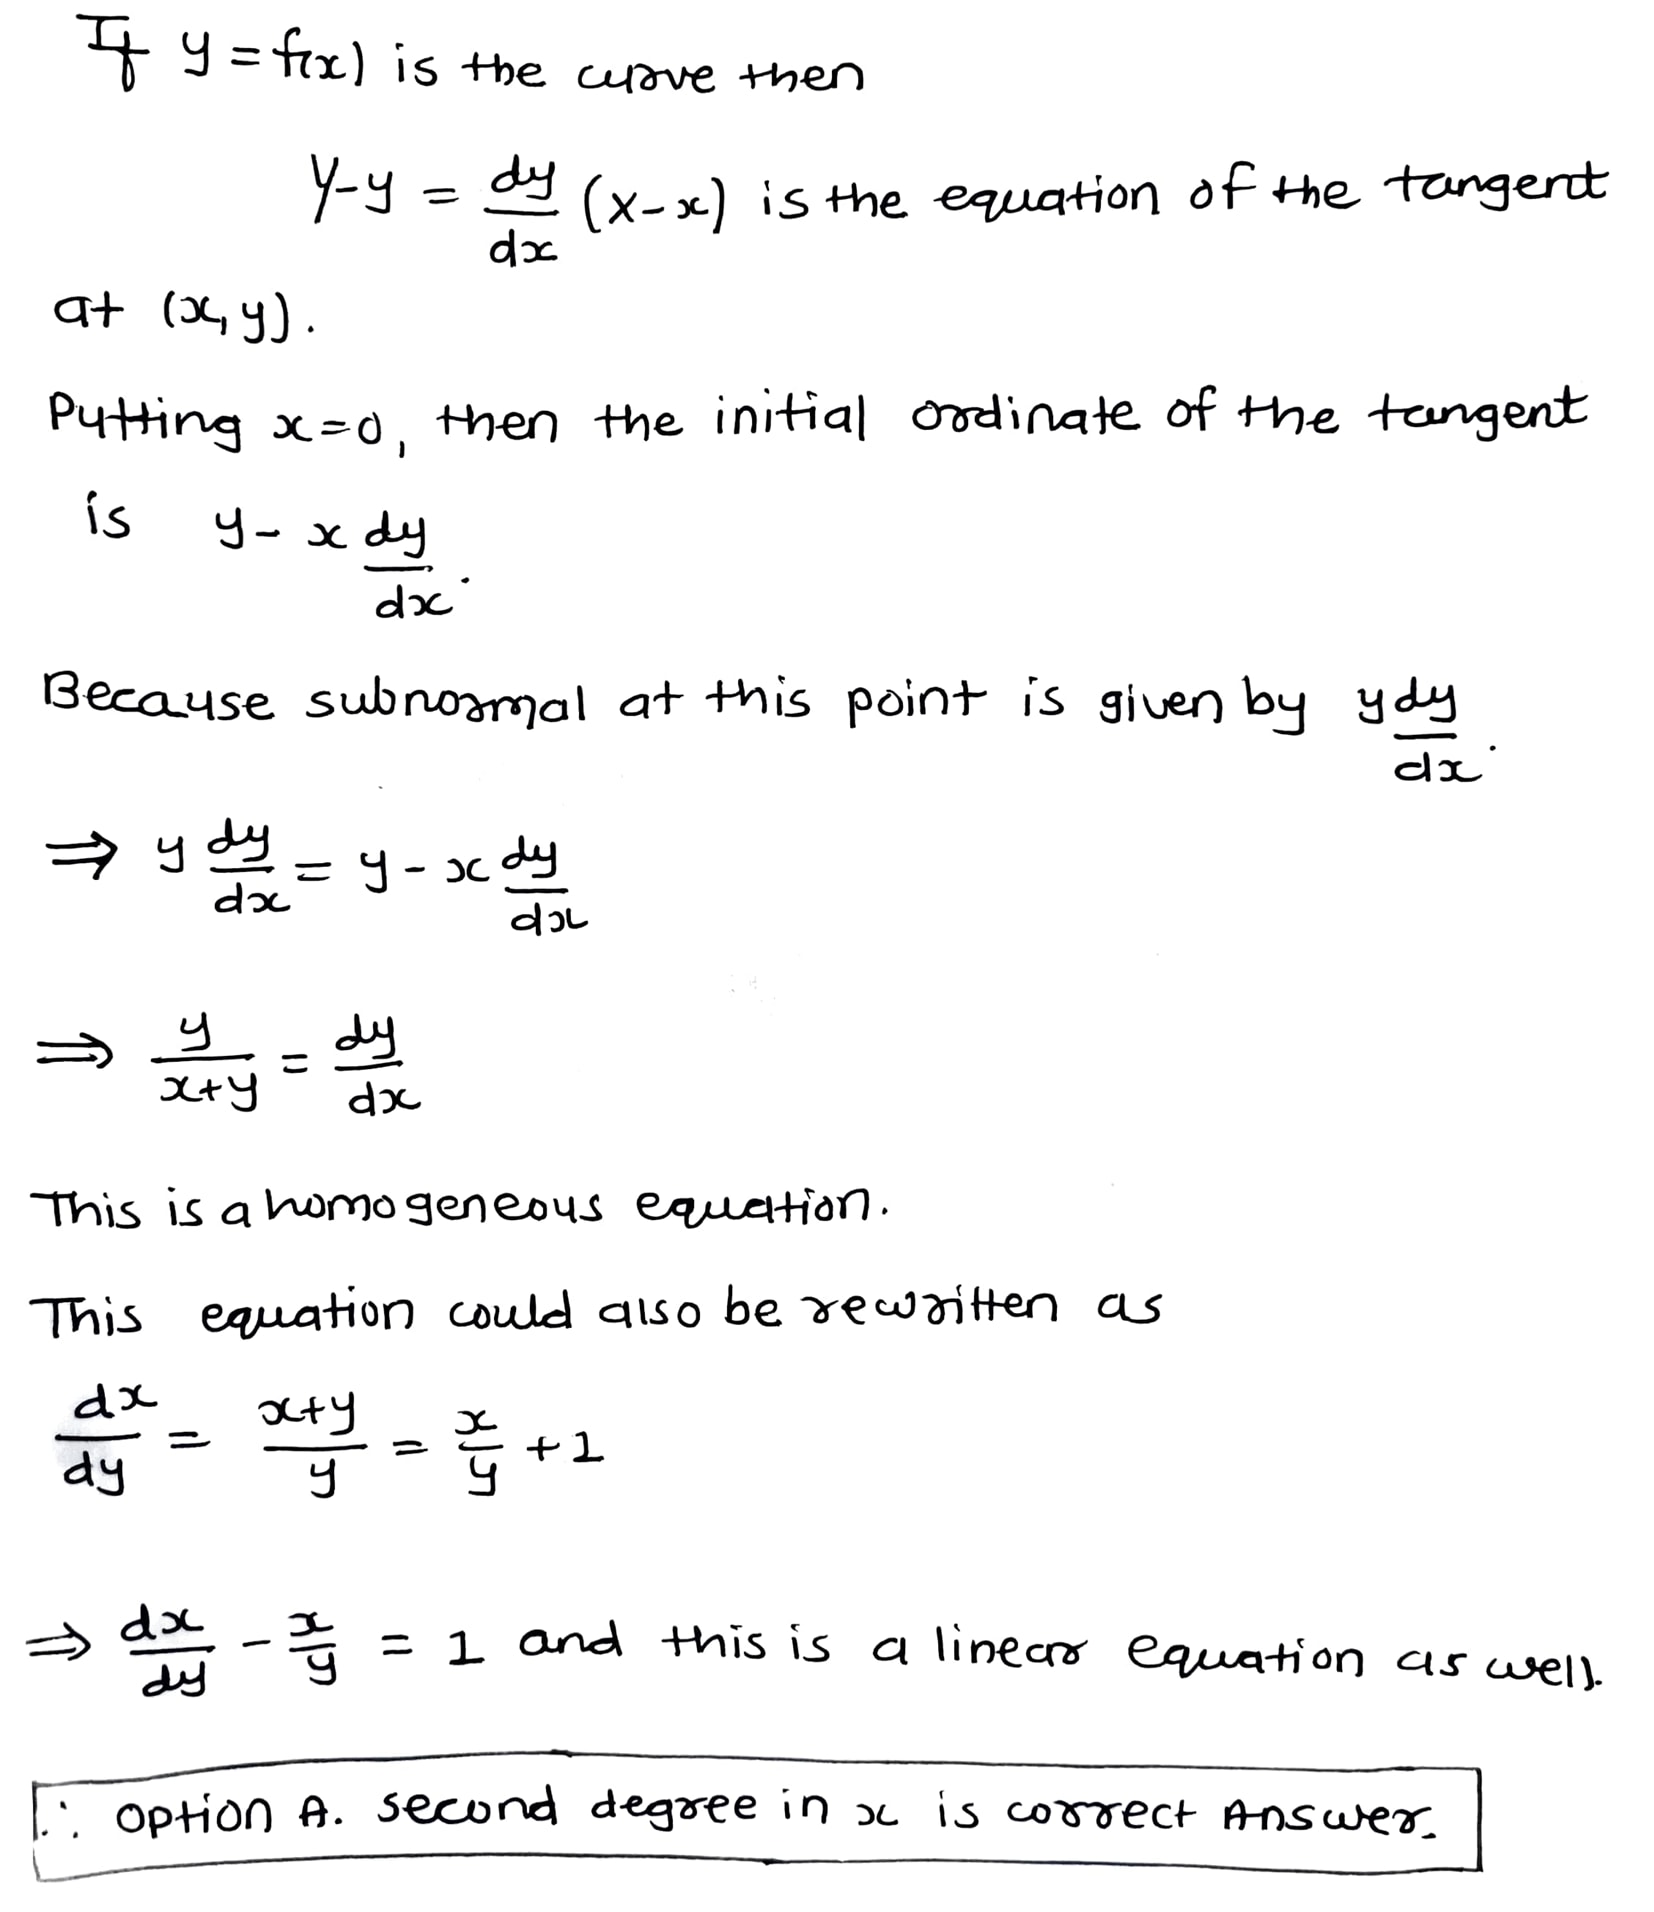 If y = f(x) is the curve then
Y-y = dy/dx (X-x) is the equation of the tangent
at (x, y).
Putting x=0, then the initial ordinate of the tangent
is y - x dy/dx.
Because subnormal at this point is given by y dy/dx.
⇒ y dy/dx = y - x dy/dx
⇒ y/(x+y) = dy/dx
This is a homogeneous equation.
This equation could also be rewritten as
dx/dy = (x+y)/y = x/y + 1
⇒ dx/dy - x/y = 1 and this is a linear equation as well.
∴ Option A. second degree in x is correct Answer.